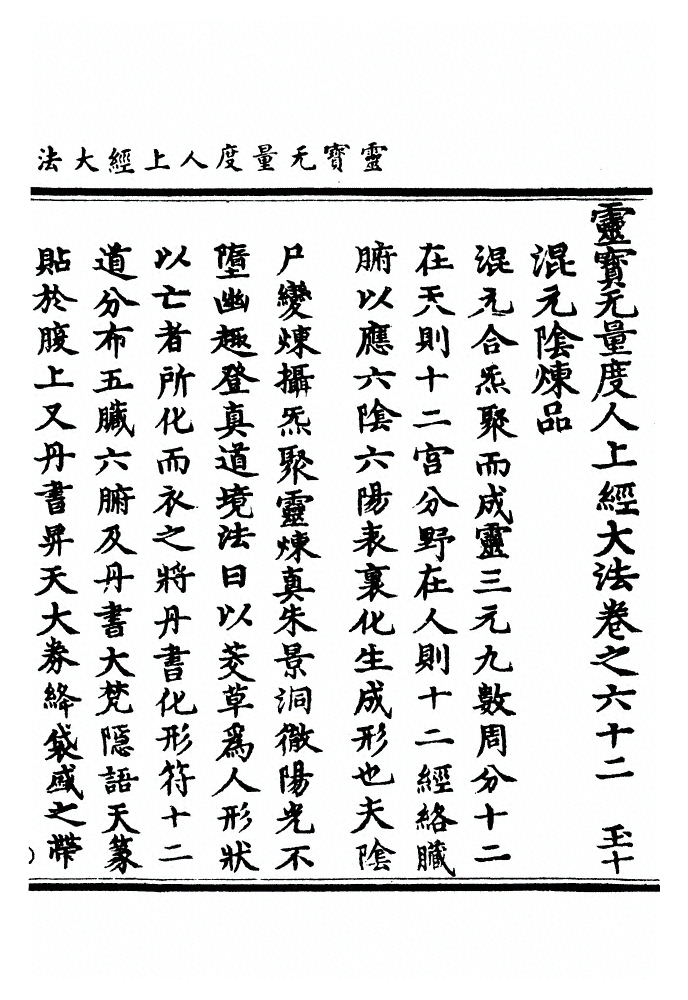 靈寶无量度人上經大法
靈寶无量度人上經大法卷之六十二 玉十
混元陰煉品
混元合炁聚而成靈三元九數周分十二
在天則十二宮分野在人則十二經絡臟
腑以應六陰六陽表裏化生成形也夫陰
尸變煉攝炁聚靈煉真朱景洞徹陽光不
墮幽趣登真道境法曰以茭草爲人形狀
以亡者所化而衣之將丹書化形符十二
道分布五臟六腑及丹書大梵隱語天篆
貼於腹上又丹書昇天大券絳袋盛之帶